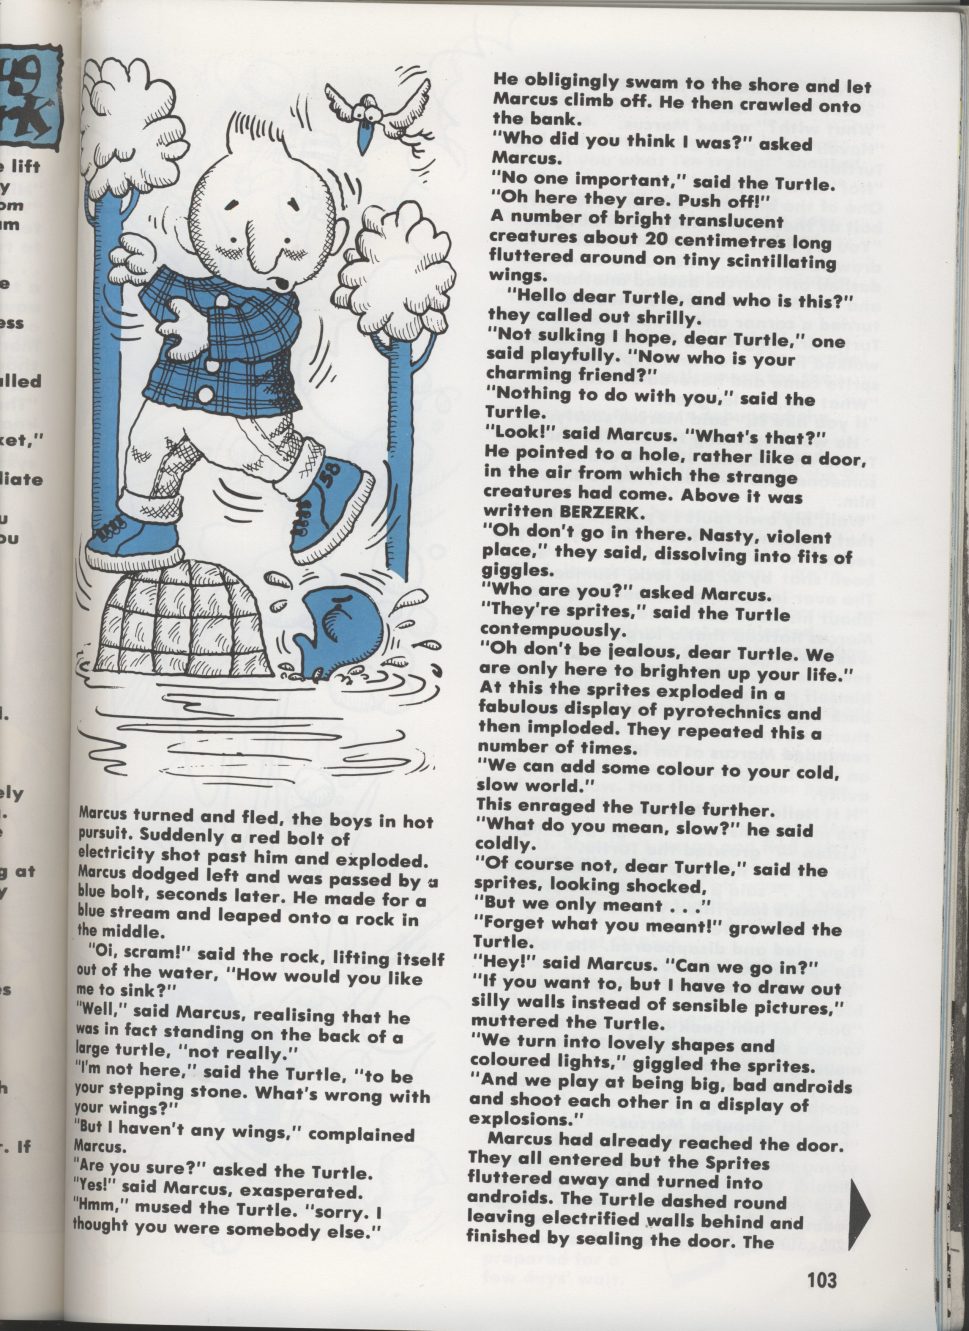 lift
y
om
am
e
ess
alled
ket,"
diate
u
ou
d.
ely
g at
y
es
h
r. If
58
Marcus turned and fled, the boys in hot
pursuit. Suddenly a red bolt of
electricity shot past him and exploded.
Marcus dodged left and was passed by a
blue bolt, seconds later. He made for a
blue stream and leaped onto a rock in
the middle.
"Oi, scram!" said the rock, lifting itself
out of the water, "How would you like
me to sink?"
"Well," said Marcus, realising that he
was in fact standing on the back of a
large turtle, "not really."
"I'm not here," said the Turtle, "to be
your stepping stone. What's wrong with
your wings?"
"But I haven't any wings," complained
Marcus.
"Are you sure?" asked the Turtle.
"Yes!" said Marcus, exasperated.
"Hmm," mused the Turtle. "sorry. I
thought you were somebody else."
He obligingly swam to the shore and let
Marcus climb off. He then crawled onto
the bank.
"Who did you think I was?" asked
Marcus.
"No one important," said the Turtle.
"Oh here they are. Push off!"
A number of bright translucent
creatures about 20 centimetres long
fluttered around on tiny scintillating
wings.
"Hello dear Turtle, and who is this?"
they called out shrilly.
"Not sulking I hope, dear Turtle," one
said playfully. "Now who is your
charming friend?"
"Nothing to do with you," said the
Turtle.
"Look!" said Marcus. "What's that?"
He pointed to a hole, rather like a door,
in the air from which the strange
creatures had come. Above it was
written BERZERK.
"Oh don't go in there. Nasty, violent
place," they said, dissolving into fits of
giggles.
"Who are you?" asked Marcus.
"They're sprites," said the Turtle
contempuously.
"Oh don't be jealous, dear Turtle. We
are only here to brighten up your life."
At this the sprites exploded in a
fabulous display of pyrotechnics and
then imploded. They repeated this a
number of times.
"We can add some colour to your cold,
slow world."
This enraged the Turtle further.
"What do you mean, slow?" he said
coldly.
"Of course not, dear Turtle," said the
sprites, looking shocked,
"But we only meant . . ."
"Forget what you meant!" growled the
Turtle.
"Hey!" said Marcus. "Can we go in?"
"If you want to, but I have to draw out
silly walls instead of sensible pictures,"
muttered the Turtle.
"We turn into lovely shapes and
coloured lights," giggled the sprites.
"And we play at being big, bad androids
and shoot each other in a display of
explosions."
Marcus had already reached the door.
They all entered but the Sprites
fluttered away and turned into
androids. The Turtle dashed round
leaving electrified walls behind and
finished by sealing the door. The
103